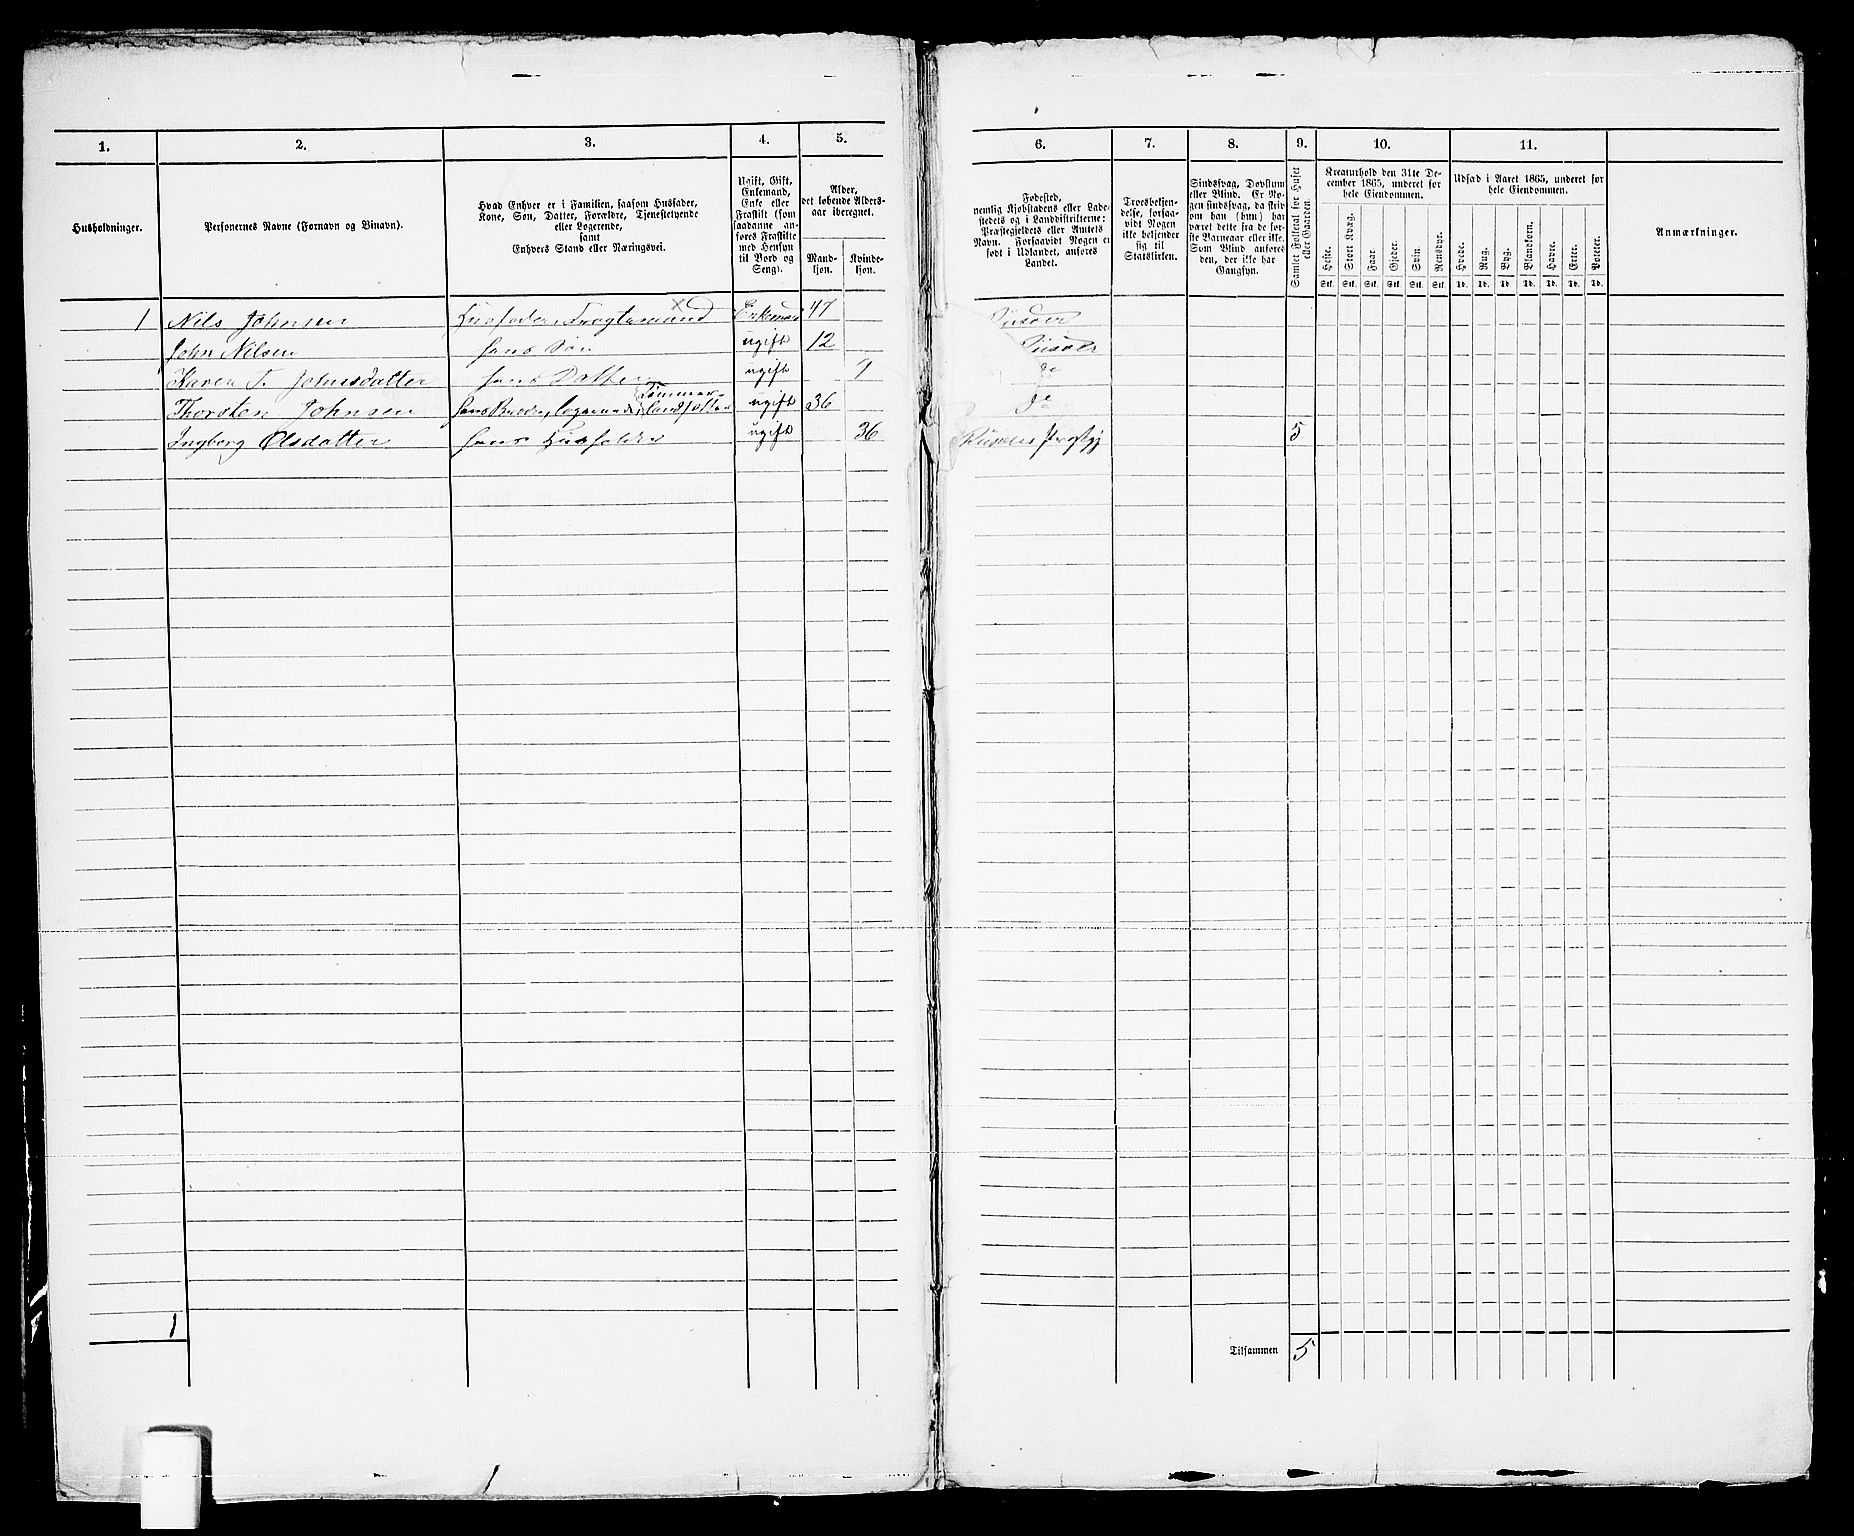 1. 2. 3. 4. 5. 6. 7. 8. 9. 10. 11.
Husholdninger.
Personernes Navne (Fornavn og Binavn).
Hvad Enhver er i Familien, saasom Husfader,
Kone, Søn, Datter, Forældre, Tjenestetyende
eller Logerende,
samt
Enhvers Stand eller Næringsvei.
Ugift, Gift,
Enkemand,
Enke eller
Fraskilt (som
saadanne an-
føres Fraskilte
med Hensyn
til Bord og
Seng).
Alder,
det løbende Alders-
aar iberegnet.
Mand-
kjøn.
Kvinde-
kjøn.
Fødested,
nemlig Kjøbstadens eller Lade-
stedets og i Landdistrikterne:
Præstegjeldets eller Amtets
Navn. Forsaavidt Nogen er
født i Udlandet, anføres
Landet.
Troesbekjen-
delse, forsaa-
vidt Nogen
ikke bekjender
sig til
Statskirken.
Sindssvag, Døvstum
eller Blind. Er No-
gen sindssvag, da skriv
om han (hun) har
været dette fra de før-
ste Barneaar eller ikke.
Som Blind anføres
den, der ikke har
Gangsyn.
Samlet Folketal for Huset
eller Gaarden.
Kreaturhold den 31te De-
cember 1865, underet for
hele Eiendommen.
Heste. Stort Kvæg. Faar. Gjeder. Svin. Rensdyr.
Stk. Stk. Stk. Stk. Stk. Stk.
Udsæd i Aaret 1865, underet for
hele Eiendommen.
Hvede. Rug. Byg. Blandkorn. Havre. Erter. Poteter.
Td. Td. Td. Td. Td. Td. Td.
Anmærkninger.
1 Nils Johnsen Husfader, Fragtemand Enkemand 47 Riisøer
John Nilsen hans Søn ugift 12 Riisøer
Karen T. Johnsdatter hans Datter ugift 9 do
Thorsten Johnsen hans Broder, logerende, ugift 36 do
Ingborg Olsdatter hans Husholder ugift 36 5
1 Tilsammen 5